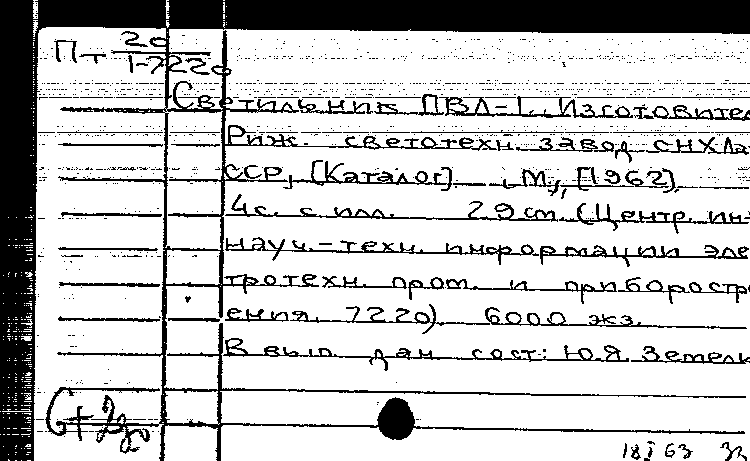 П-т 20
1-7220
Светильник ПВЛ-1. Изготовител
Риж. светотехн. завод СНХ Ла
ССР, [Каталог]. М., [1962].
4с. с илл. 29 см. (Центр. ин-
науч.-техн. информации эле
тротехн. пром. и приборостр
ения. 7220). 6000 экз.
В вып. дан. сост.: Ю.Я. Земел
18 I 63